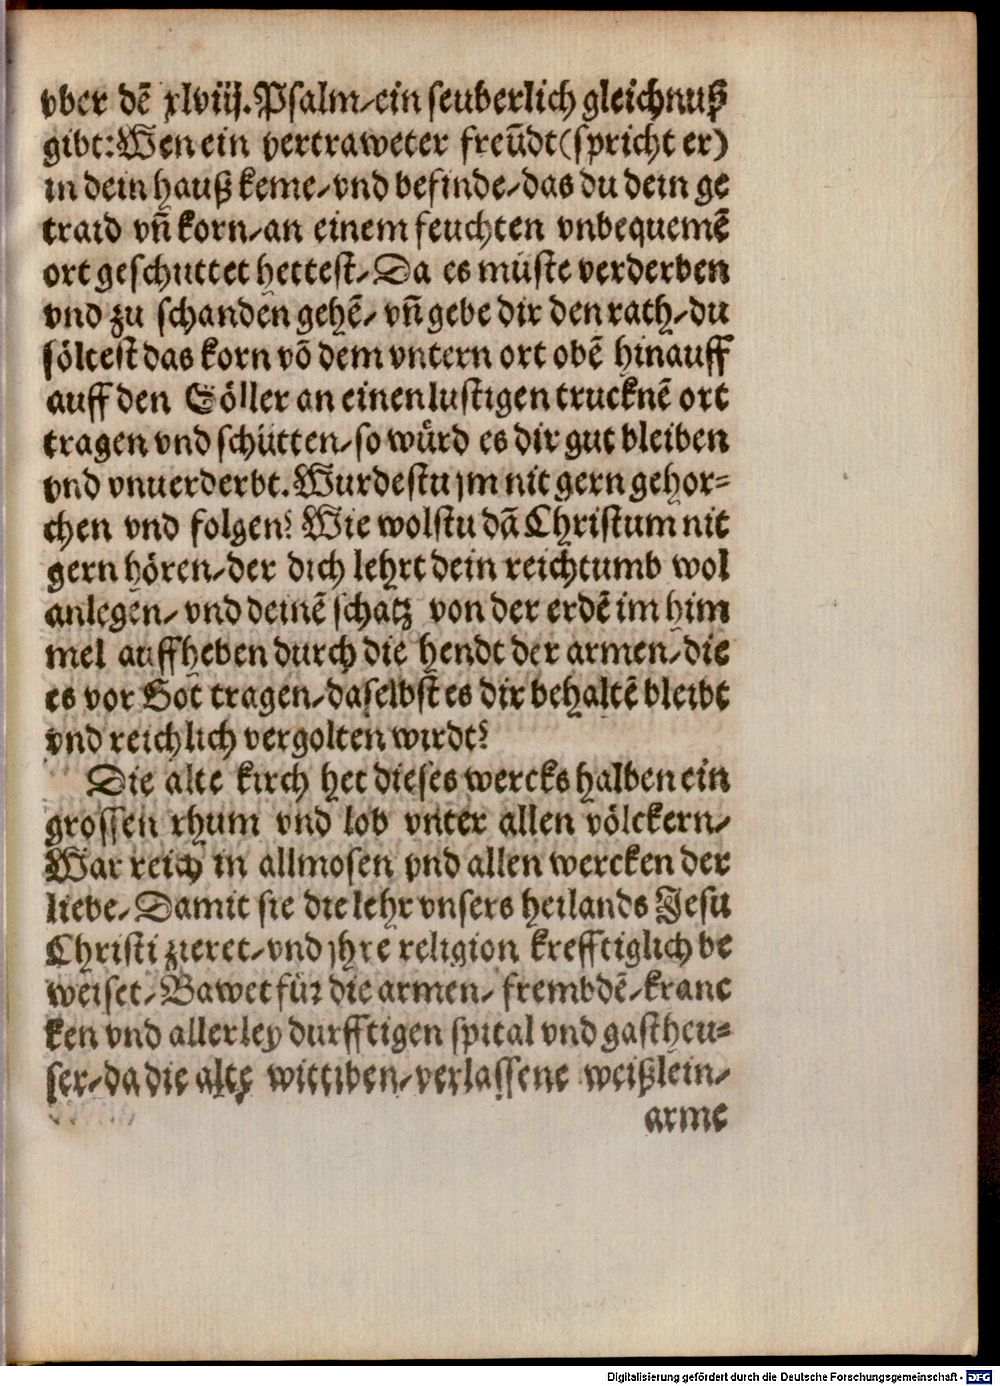 vber dē xlviij. Psalm/ein seuberlich gleichnuß
gibt: Wen ein vertraweter freūdt (spricht er)
in dein hauß keme/vnd befinde/das du dein ge
traid vñ korn/an einem feuchten vnbequemē
ort geschuttet hettest/Da es müste verderben
vnd zu schanden gehē/vñ gebe dir den rath/du
söltest das korn vō dem vntern ort obē hinauff
auff den Söller an einen lustigen trucknē ort
tragen vnd schütten/so würd es dir gut bleiben
vnd vnuerderbt. Wurdestu jm nit gern gehor-
chen vnd folgen? Wie wolstu dā Christum nit
gern hören/der dich lehrt dein reichtumb wol
anlegen/vnd deinē schatz von der erdē im him
mel auffheben durch die hendt der armen/die
es vor Got tragen/daselbst es dir behaltē bleibt
vnd reichlich vergolten wirdt?
Die alte kirch het dieses wercks halben ein
grossen rhum vnd lob vnter allen völckern/
War reich in allmosen vnd allen wercken der
liebe/Damit sie die lehr vnsers heilands Jesu
Christi zieret/vnd jhre religion krefftiglich be
weiset/Bawet für die armen/frembdē/kranc
ken vnd allerley durfftigen spital vnd gastheu-
ser/da die alte wittiben/verlassene weißlein/
arme
Digitalisierung gefördert durch die Deutsche Forschungsgemeinschaft - DFG